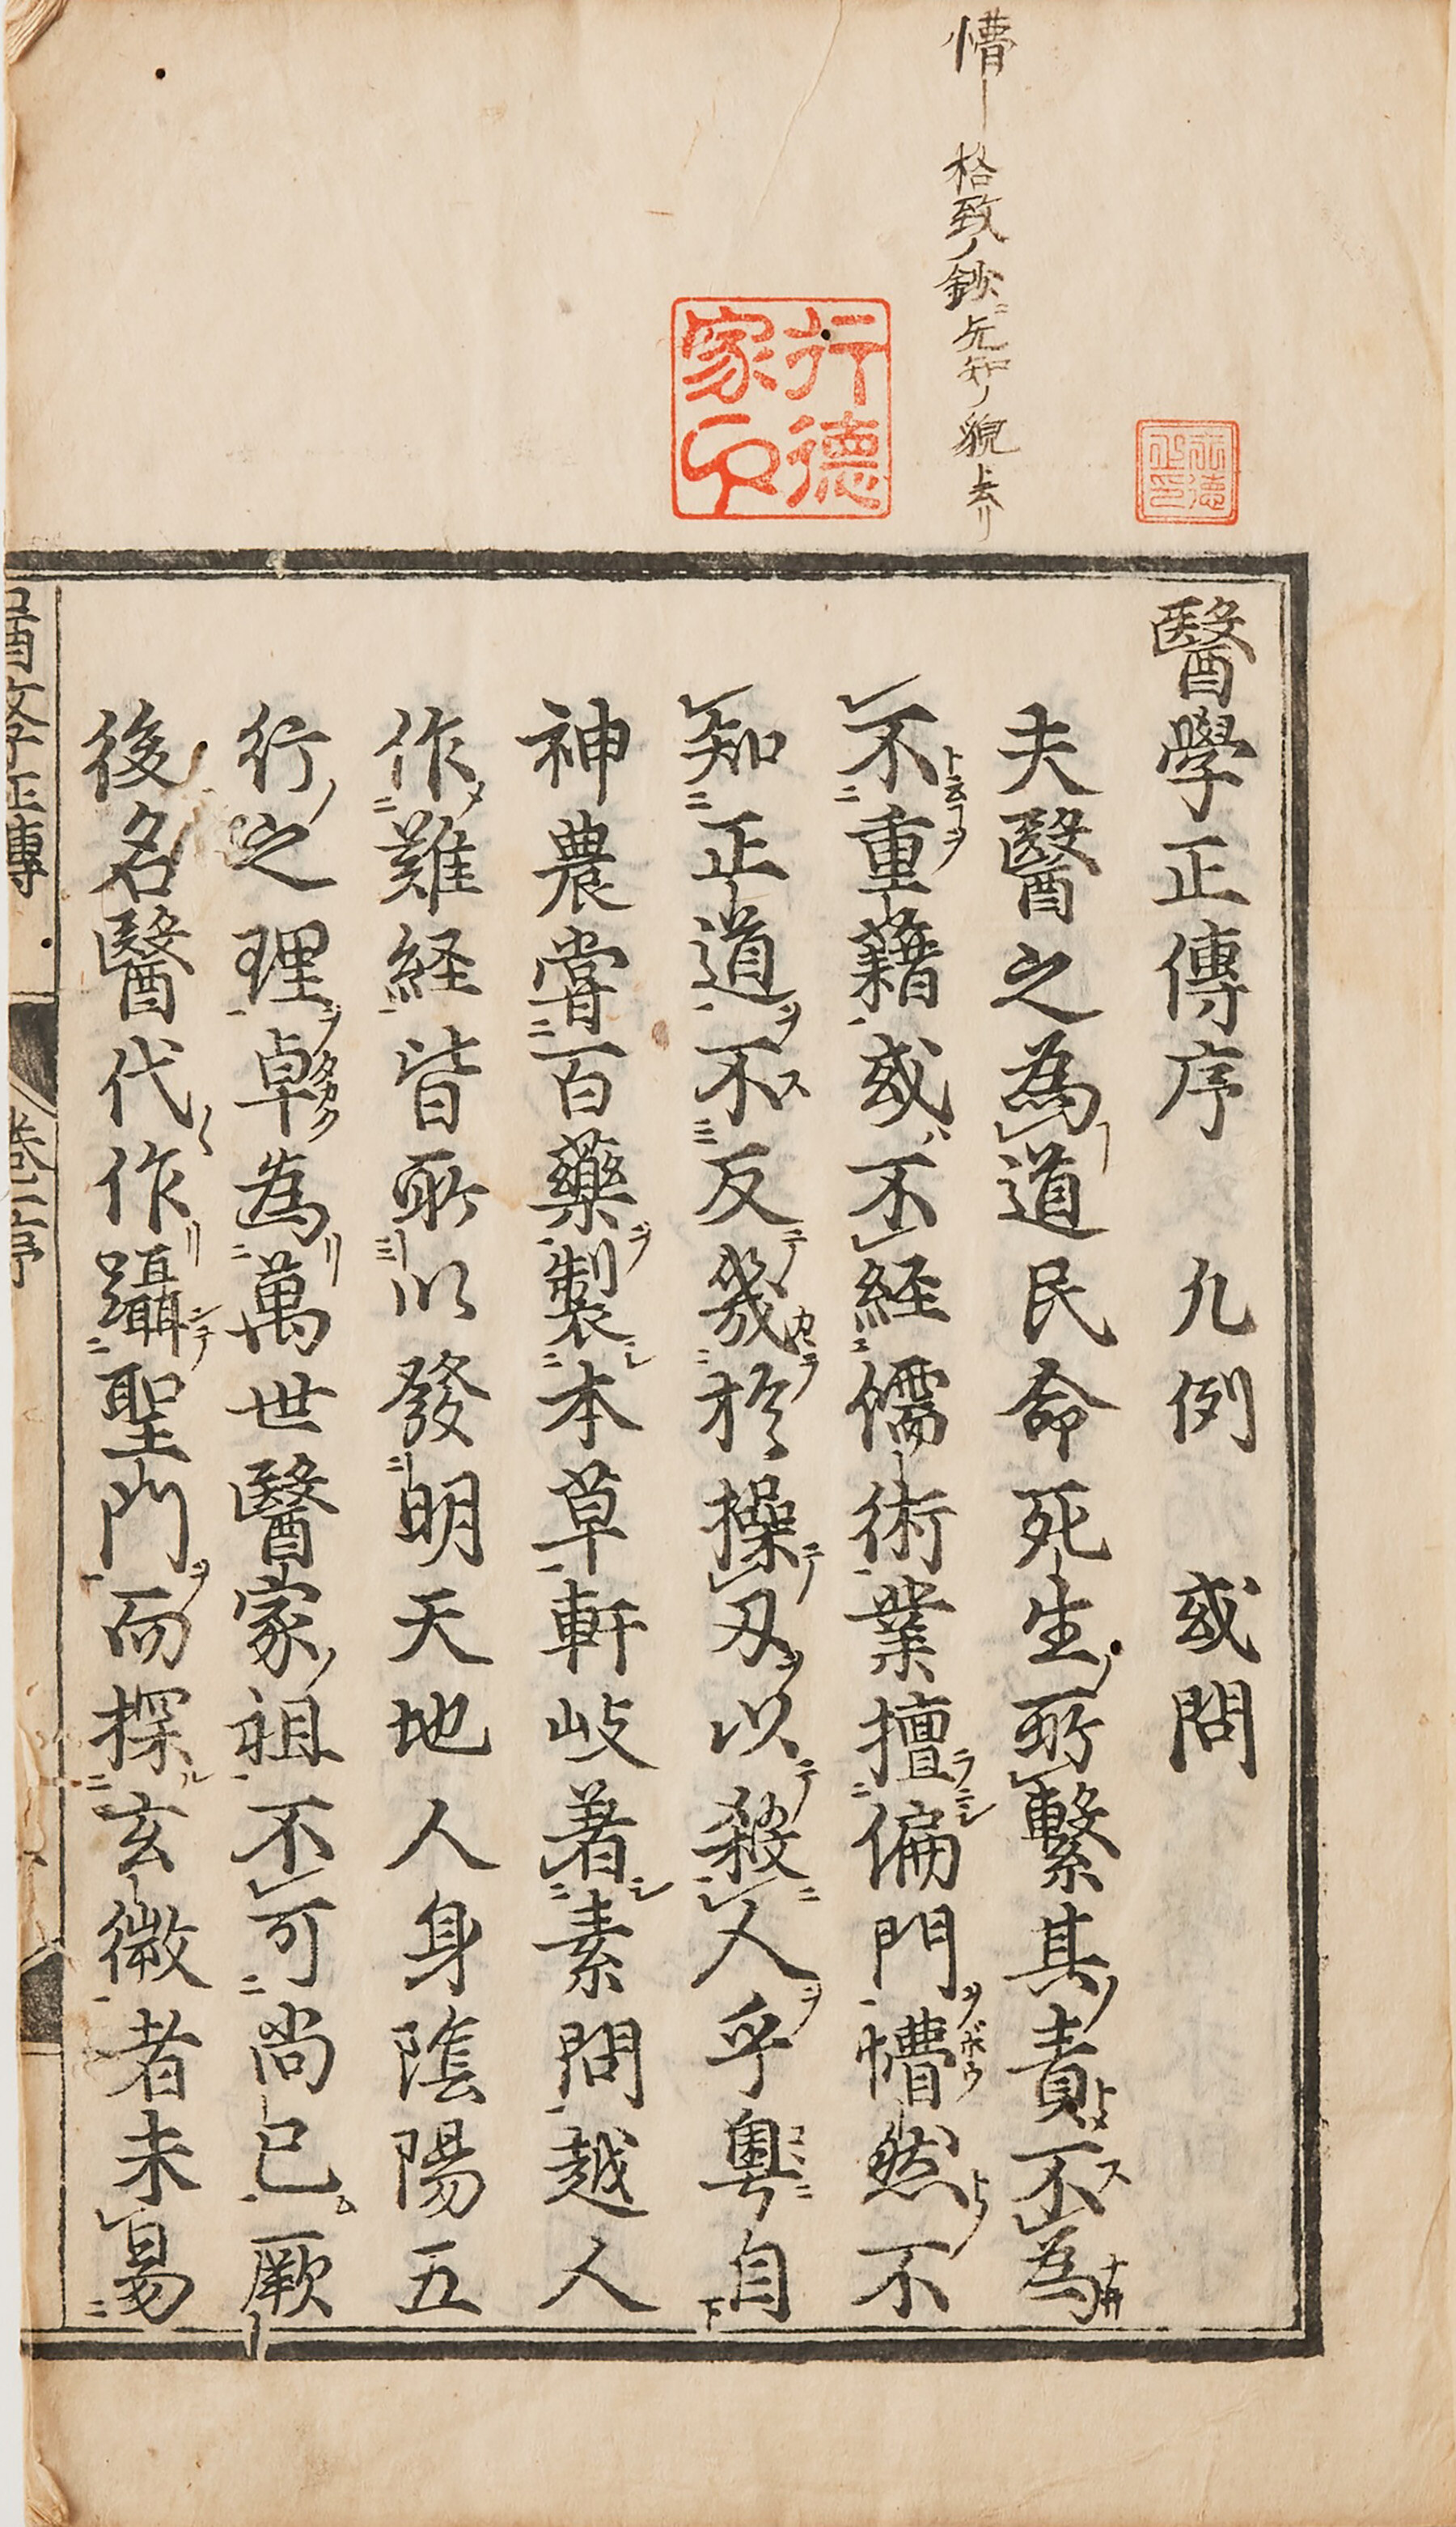 懵―格致ノ鈔ニ无知ノ貌ト云リ
行德
家印
醫學正傳序　凡例　或問
夫醫之為道民命死生所繫其責不為
不重藉或不經儒術業擅偏門懵然不
知正道不反幾於操刃以殺人乎粤自
神農嘗百藥製本草軒岐著素問越人
作難経皆所以發明天地人身陰陽五
行之理卓為萬世醫家祖不可尚已厥
後名醫代作躡聖門而探玄微者未易
醫學正傳　卷一序